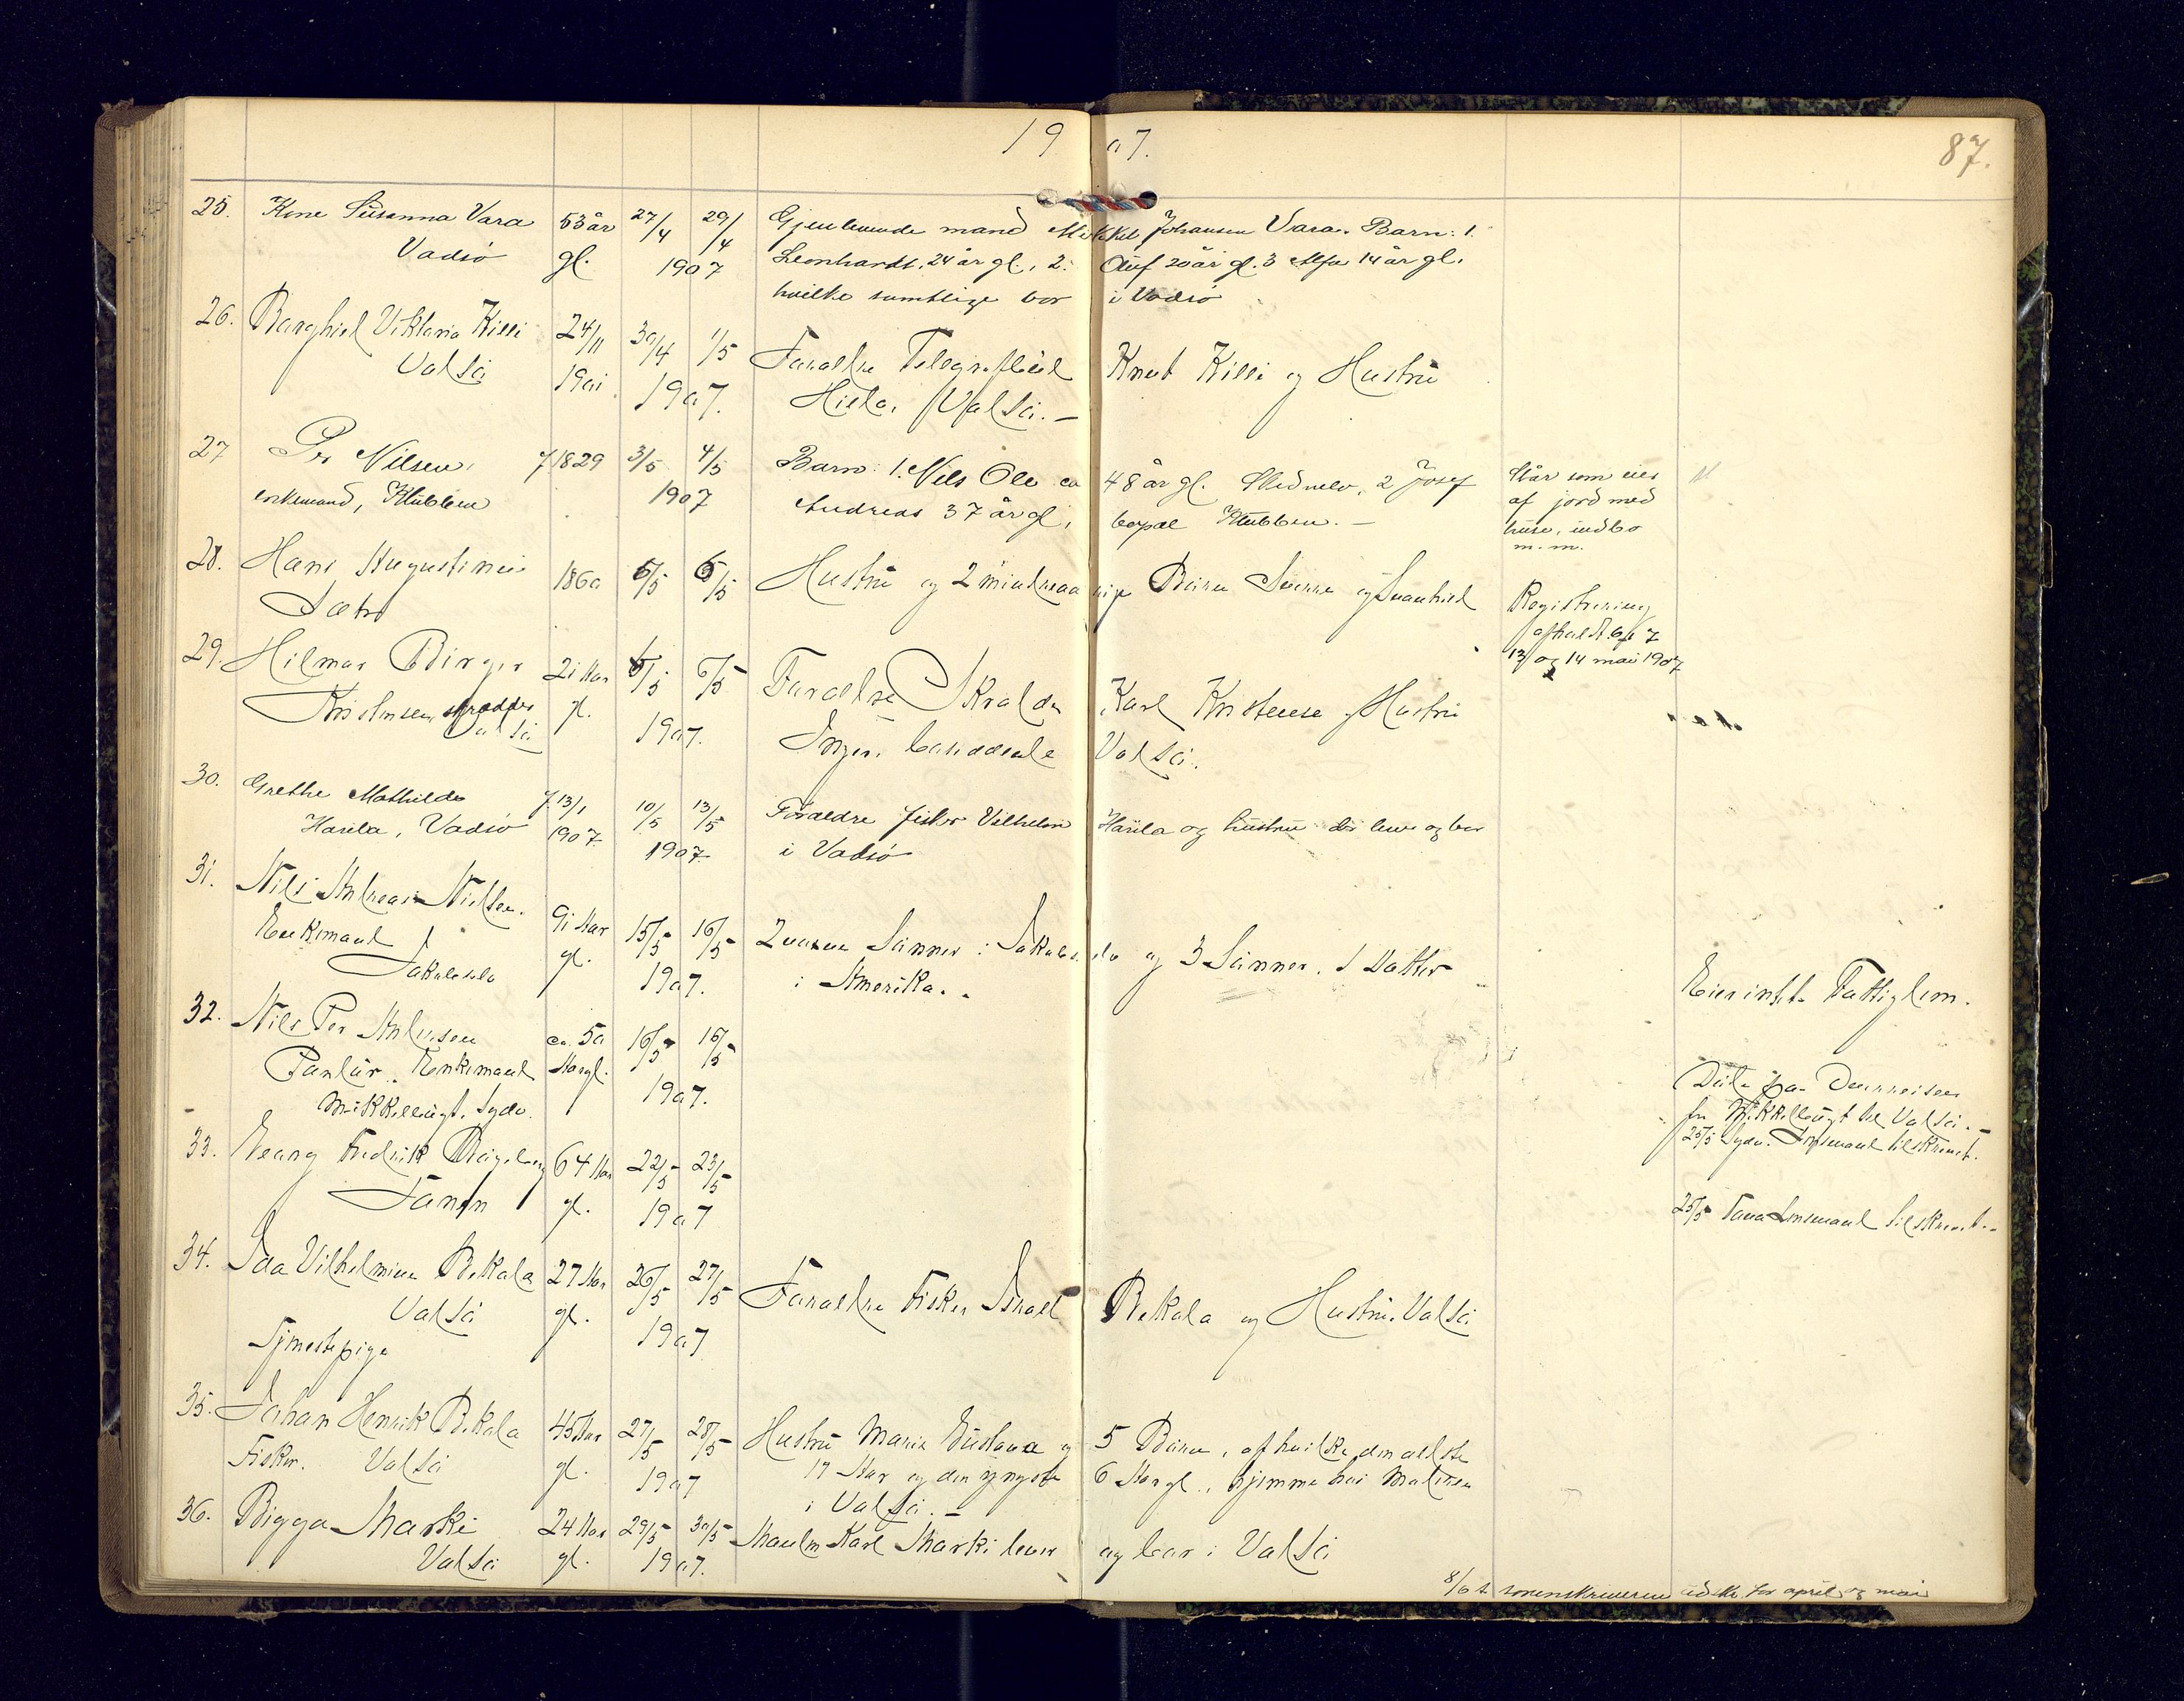 19 07.
87.
25. Kone Susanna Vara 53 år 27/4 29/4 Gjenlevende mand Mikkel Johansen Vara. Barn: 1.
Vadsö gl. 1907 Leonhardt, 24 år gl., 2. Oluf 20 år gl. 3 Alfa 14 år gl.
hvilke samtlige bor i Vadsö
26. Borghild Viktoria Killi 24/11 30/4 1/5 Forældre Telegrafbud Knut Killi og Hustru
Vadsö 1901 1907. Hilda, Vadsö. –
27 Per Nilsen, f 1829 3/5 4/5 Barn: 1. Nils Ole ca 48 år gl. 2 Josef Står som eier
enkemand, Klubben 1907 Andreas 37 år gl, bopæl Klubben. – af jord med
huse, indbo
m. m.
28. Hans Augustinius 1860 5/5 6/5 Hustru og 2 mindreaarige Börn Sverre og Svanhild Registrering
Sætre afholdt
13 og 14 mai 1907
29. Hilmar Birger 21 Aar 5/5 6/5 Forældre Skrædder Karl Kristensen og Hustru
Kristensen, skrædder gl. 1907. Inger, Vadsö.
Vadsö
30. Grethe Mathilde f 13/1 10/5 13/5 Forældre fisker Vilhelm Harila og hustru der lever og bor
Harila, Vadsö 1907 1907 i Vadsö
31. Nils Andreas Nielsen. 91 Aar 15/5 16/5 2 voxne Sönner i Jakobselv og 3 Sönner, 1 Datter Eier intet. Fattiglem.
Enkemand gl. 1907. i Amerika. –
Jakobselv
32. Nils Per Andersen ca. 50 16/5 16/5
Enkemand Aar gl. 1907.
Mikkelsnes
fra til Vadsö. –
25/5 Lensmand tilskrevet.
33. Georg Fredrik 64 Aar 22/5 23/5
Tanen gl. 1907 25/5 Tana Lensmand tilskrevet. –
34. Ida Vilhelmine Bekala 27 Aar 26/5 27/5 Forældre Fisker Israel Bekala og Hustru, Vadsö
Vadsö gl. 1907
Tjenestepige
35. Johan Henrik Bekala 45 Aar 27/5 28/5 Hustru Maria Gustava og 5 Börn, af hvilke den ældste
Fisker. Vadsö gl. 1907 17 Aar og den yngste 6 Aar gl., hjemme hos Moderen
i Vadsö. –
36. Bigga Marki 24 Aar 29/5 30/5 Manden Karl Marki lever og bor i Vadsö
Vadsö gl. 1907.
8/6 t. sorenskriveren for april og mai